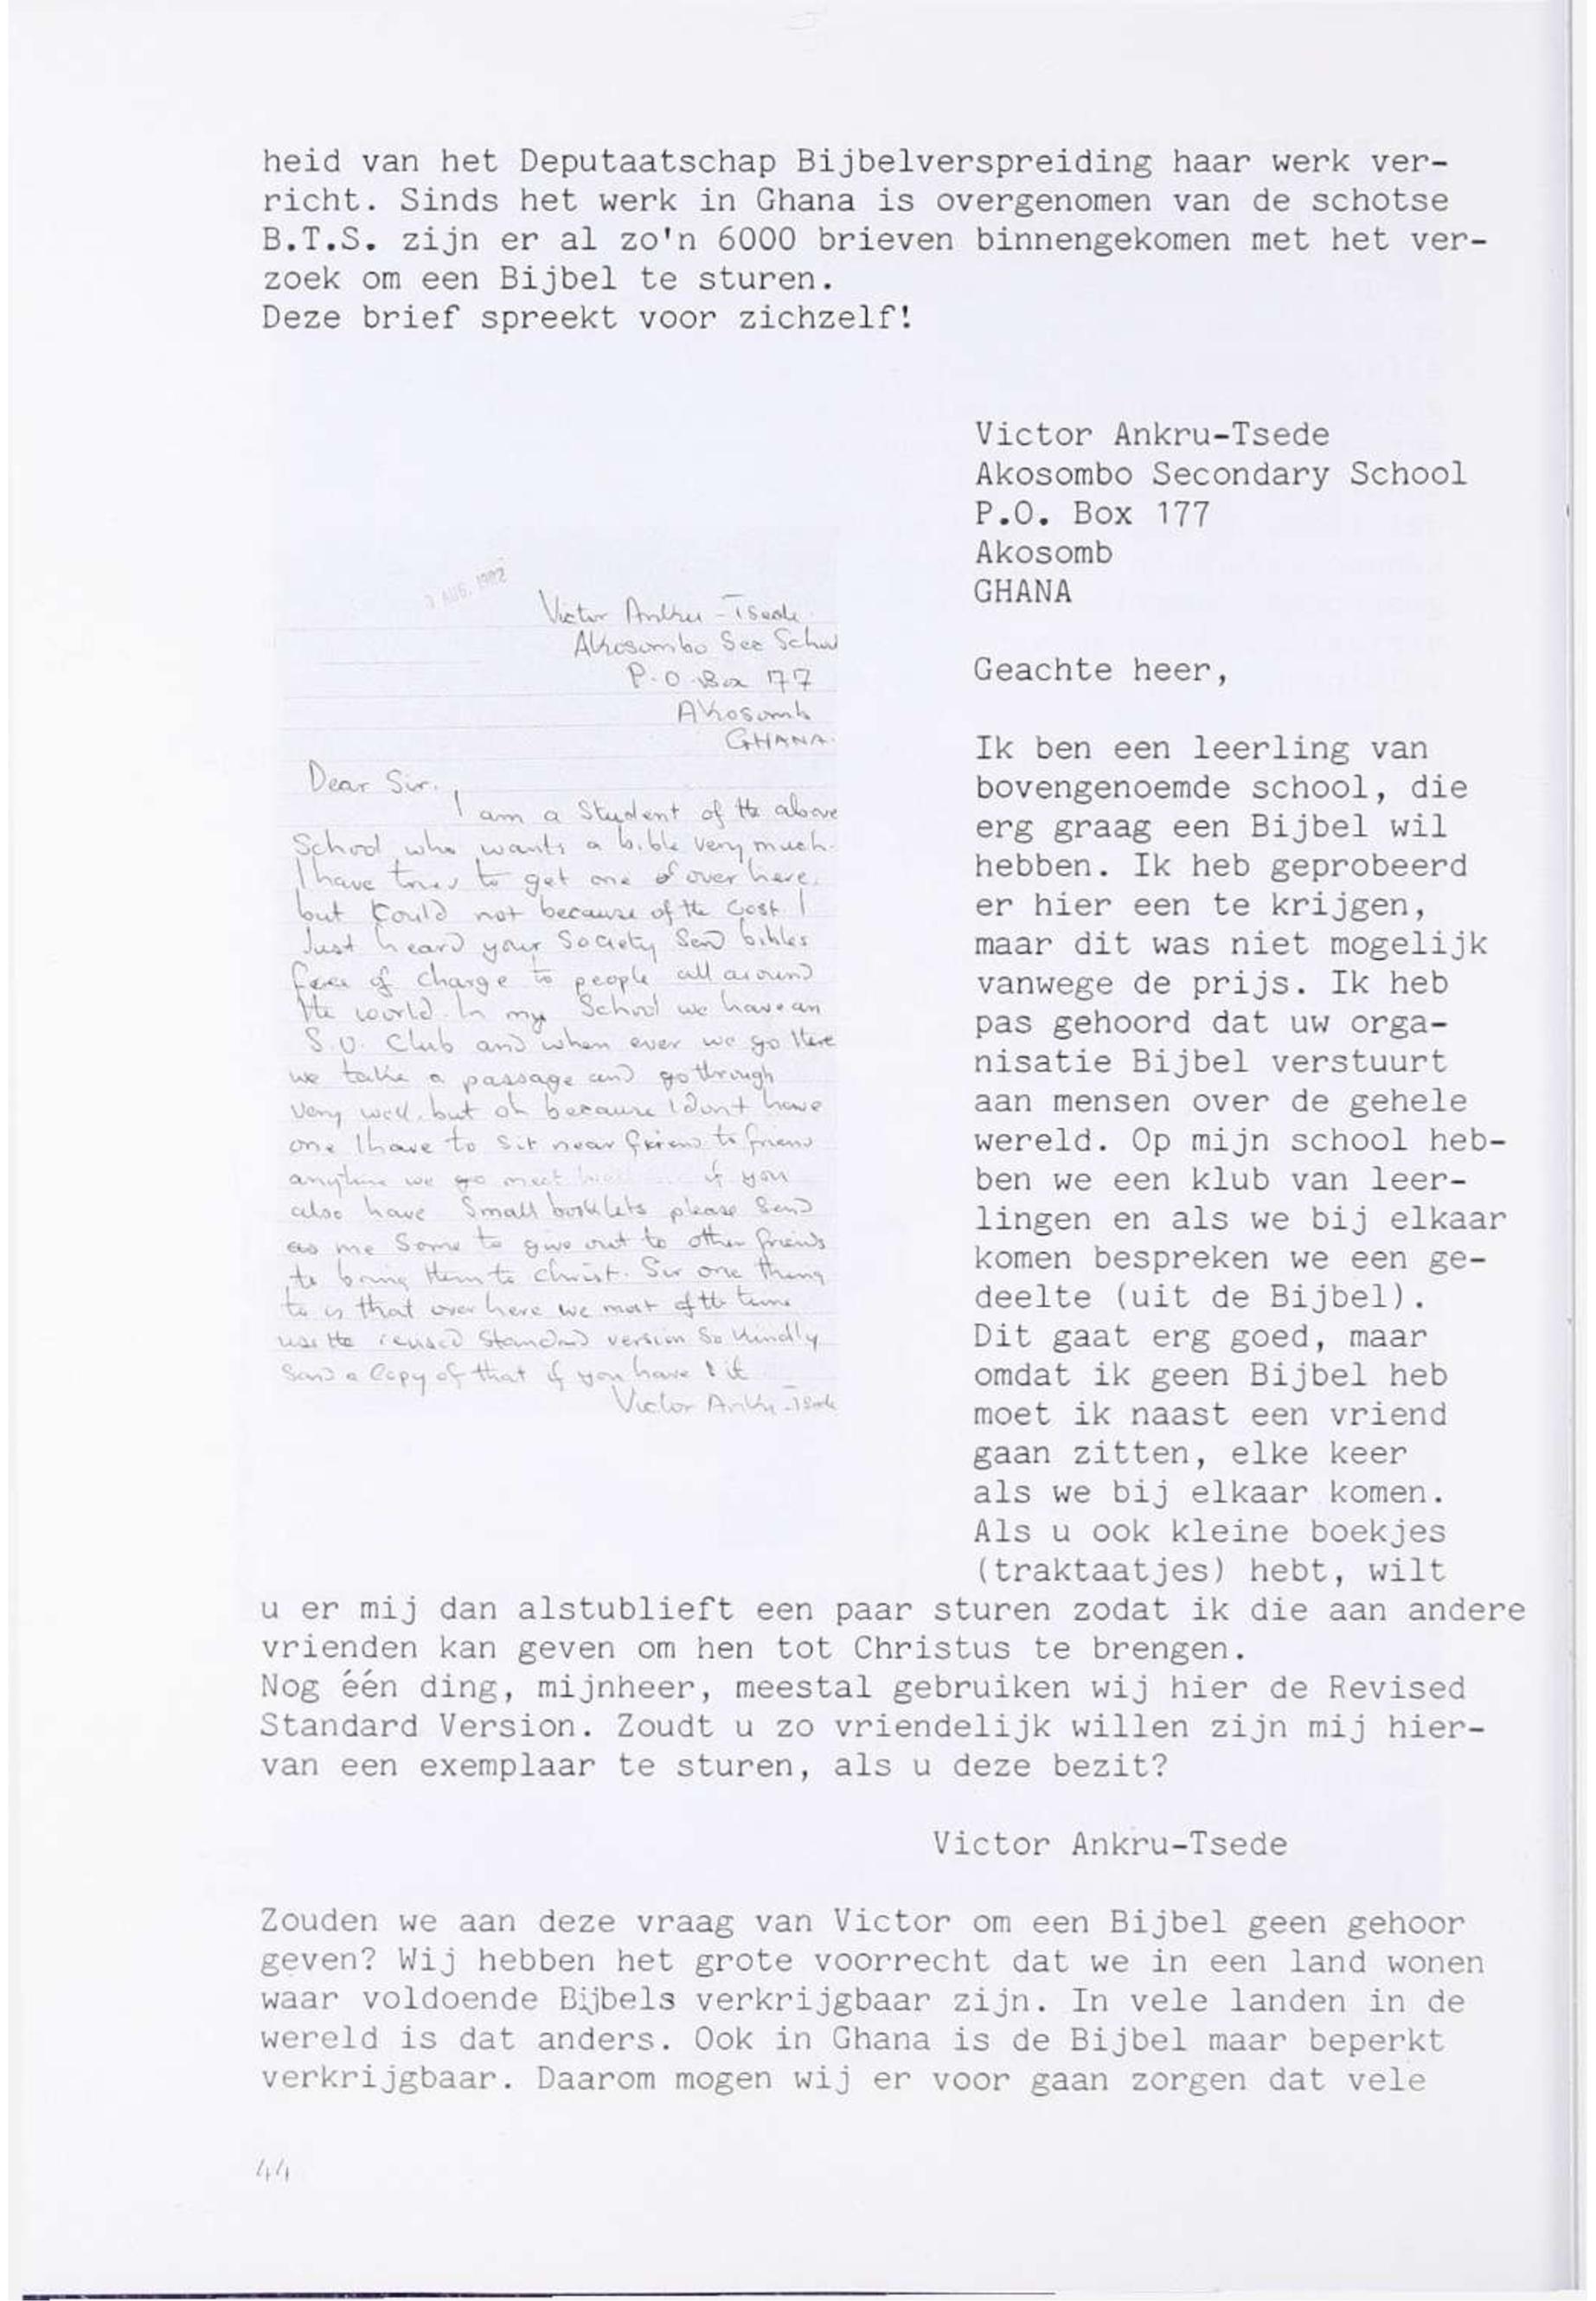 heid van het Deputaatschap Bijbelverspreiding haar werk ver-
richt. Sinds het werk in Ghana is overgenomen van de schotse
B.T.S. zijn er al zo'n 6000 brieven binnengekomen met het ver-
zoek om een Bijbel te sturen.
Deze brief spreekt voor zichzelf!
3 AUG. 1982
Victor Ankru-Tsede
Akosombo Sec School
P.O. Box 177
Akosomb
GHANA.
Dear Sir,
I am a Student of the above
School who wants a bible very much.
I have tried to get one of over here,
but could not because of the cost. I
Just heard your Society Send bibles
free of charge to people all around
the world. In my School we have an
S.U. Club and when ever we go there
we take a passage and go through
very well, but oh because I don't have
one I have to sit near friend to friend
anytime we go meet if you
also have Small booklets please Send
me Some to give out to other friends
to bring them to Christ. Sir one thing
is that over here we most of the time
use the revised Standard version So Kindly
Send a Copy of that if you have it
Victor Ankru-Tsede
Victor Ankru-Tsede
Akosombo Secondary School
P.O. Box 177
Akosomb
GHANA
Geachte heer,
Ik ben een leerling van
bovengenoemde school, die
erg graag een Bijbel wil
hebben. Ik heb geprobeerd
er hier een te krijgen,
maar dit was niet mogelijk
vanwege de prijs. Ik heb
pas gehoord dat uw orga-
nisatie Bijbel verstuurt
aan mensen over de gehele
wereld. Op mijn school heb-
ben we een klub van leer-
lingen en als we bij elkaar
komen bespreken we een ge-
deelte (uit de Bijbel).
Dit gaat erg goed, maar
omdat ik geen Bijbel heb
moet ik naast een vriend
gaan zitten, elke keer
als we bij elkaar komen.
Als u ook kleine boekjes
(traktaatjes) hebt, wilt
u er mij dan alstublieft een paar sturen zodat ik die aan andere
vrienden kan geven om hen tot Christus te brengen.
Nog één ding, mijnheer, meestal gebruiken wij hier de Revised
Standard Version. Zoudt u zo vriendelijk willen zijn mij hier-
van een exemplaar te sturen, als u deze bezit?
Victor Ankru-Tsede
Zouden we aan deze vraag van Victor om een Bijbel geen gehoor
geven? Wij hebben het grote voorrecht dat we in een land wonen
waar voldoende Bijbels verkrijgbaar zijn. In vele landen in de
wereld is dat anders. Ook in Ghana is de Bijbel maar beperkt
verkrijgbaar. Daarom mogen wij er voor gaan zorgen dat vele
44